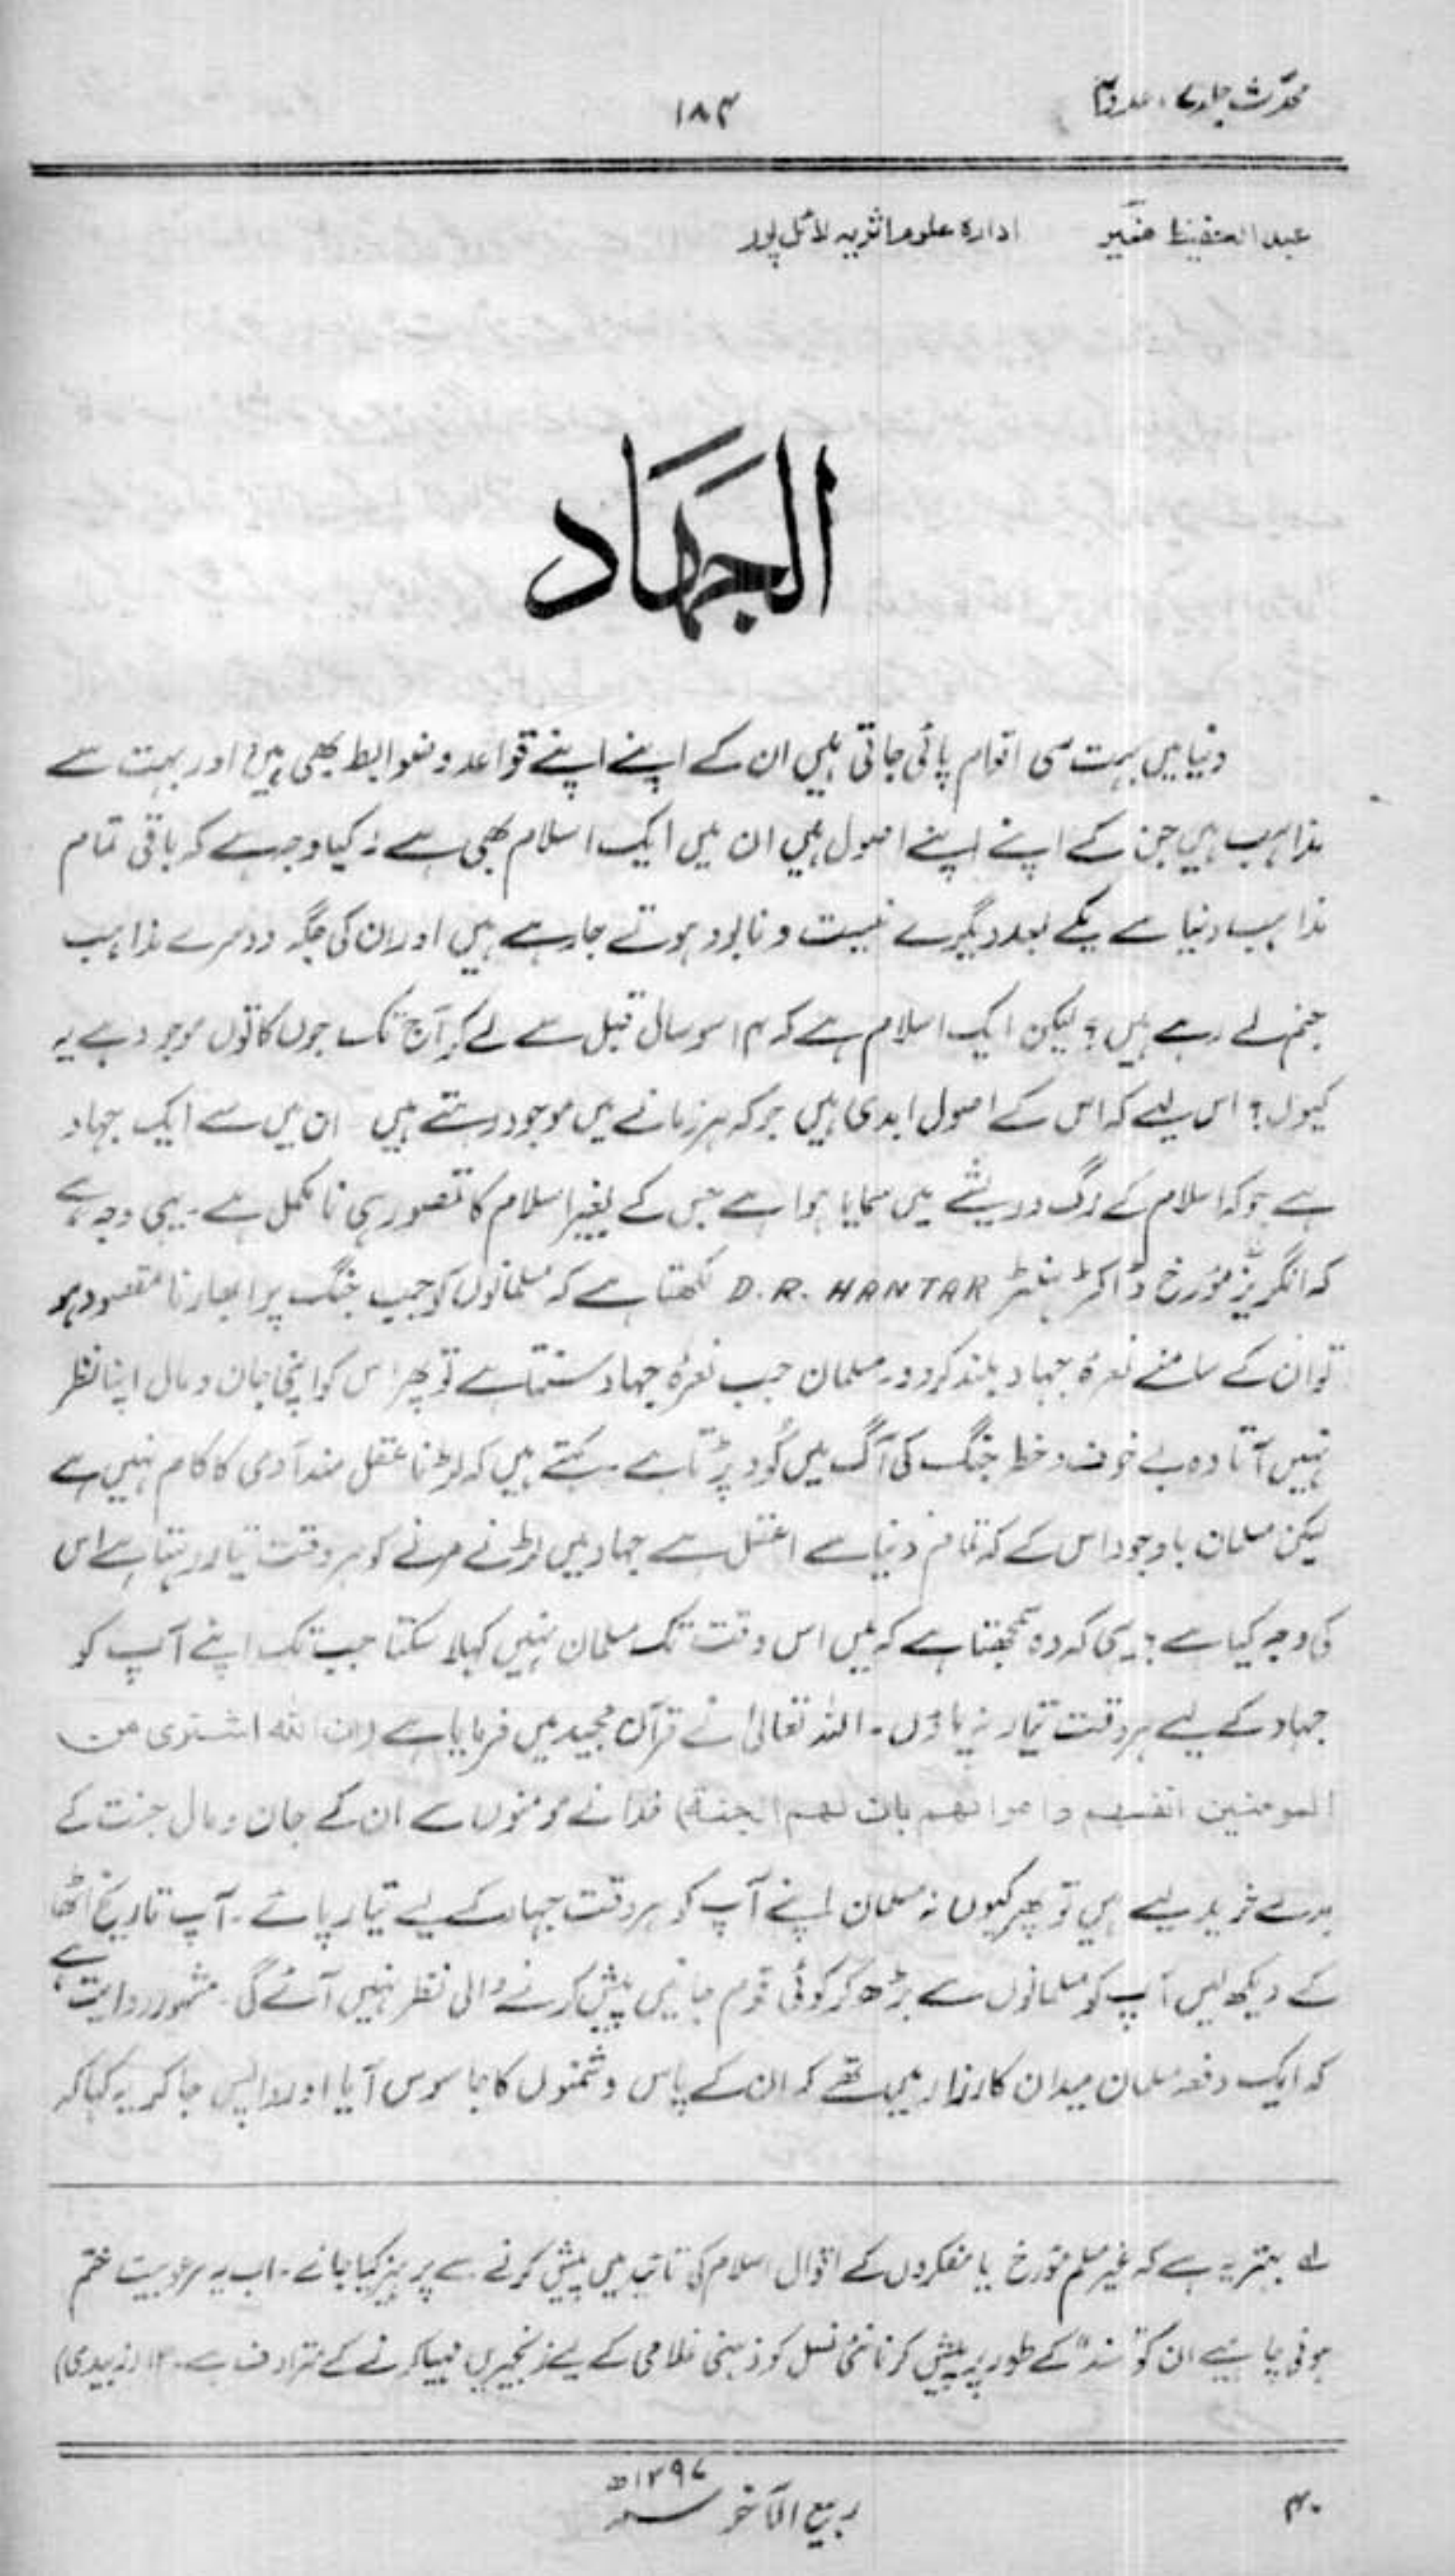 محدّث جلد ۷، عدد ۴
۱۸۴
عبد الحفیظ منیر ادارہ علوم اثریہ لائل پور
الجَهَاد
دنیا میں بہت سی اقوام پائی جاتی ہیں ان کے اپنے اپنے قواعد و ضوابط بھی ہیں اور بہت سے
مذاہب ہیں جن کے اپنے اپنے اصول ہیں ان میں ایک اسلام بھی ہے۔ کیا وجہ ہے کہ باقی تمام
مذاہب دنیا سے یکے بعد دیگرے نیست و نابود ہوتے جا رہے ہیں اور ان کی جگہ دوسرے مذاہب
جنم لے رہے ہیں؟ لیکن ایک اسلام ہے کہ ۱۴ سو سال قبل سے لے کر آج تک جوں کا توں موجود ہے یہ
کیوں؟ اس لیے کہ اس کے اصول ابدی ہیں جو کہ ہر زمانے میں موجود رہتے ہیں ان میں سے ایک جہاد
ہے جو کہ اسلام کے رگ و ریشے میں سمایا ہوا ہے جس کے بغیر اسلام کا تصور ہی نامکمل ہے۔ یہی وجہ ہے
کہ انگریز مؤرخ ڈاکٹر ہنٹر D.R. HANTAR لکھتا ہے کہ مسلمانوں کو جب جنگ پر ابھارنا مقصود ہو
تو ان کے سامنے نعرۂ جہاد بلند کر دو۔ مسلمان جب نعرۂ جہاد سنتا ہے تو پھر اس کو اپنی جان و مال اپنا نظر
نہیں آتا وہ بے خوف و خطر جنگ کی آگ میں کُود پڑتا ہے۔ کہتے ہیں کہ لڑنا عقل مند آدمی کا کام نہیں ہے
لیکن مسلمان باوجود اس کے کہ تمام دنیا سے اعقل ہے جہاد میں لڑنے مرنے کو ہر وقت تیار رہتا ہے اس
کی وجہ کیا ہے؟ یہی کہ وہ سمجھتا ہے کہ میں اس وقت تک مسلمان نہیں کہلا سکتا جب تک اپنے آپ کو
جہاد کے لیے ہر وقت تیار نہ پاؤں۔ اللہ تعالیٰ نے قرآن مجید میں فرمایا ہے (ان الله اشتری من
المومنین انفسهم واموالهم بان لهم الجنة) خدا نے مومنوں سے ان کے جان و مال جنت کے
بدلے خرید لیے ہیں تو پھر کیوں نہ مسلمان اپنے آپ کو ہر وقت جہاد کے لیے تیار پائے۔ آپ تاریخ اٹھا
کے دیکھ لیں آپ کو مسلمانوں سے بڑھ کر کوئی قوم جانیں پیش کرنے والی نظر نہیں آئے گی۔ مشہور روایت ہے
کہ ایک دفعہ مسلمان میدان کارزار میں تھے کہ ان کے پاس دشمنوں کا جاسوس آیا اور واپس جا کر یہ کہا کہ
لے بہتر یہ ہے کہ غیر مسلم مؤرخ یا مفکروں کے اقوال اسلام کی تائید میں پیش کرنے سے پرہیز کیا جائے۔ اب یہ مرعوبیت ختم
ہونی چاہیے ان کو "سند" کے طور پر پیش کرنا نئی نسل کو ذہنی غلامی کے لیے زنجیریں مہیا کرنے کے مترادف ہے۔ ۱۲ (زبیدی)
ربیع الآخر سنہ ۱۳۹۷ھ
۴۰